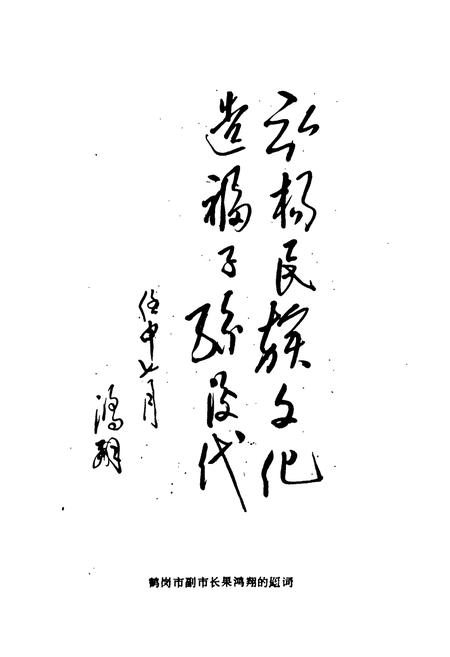 弘扬民族文化
造福子孙后代
壬申七月
鸿翔
鹤岗市副市长果鸿翔的题词